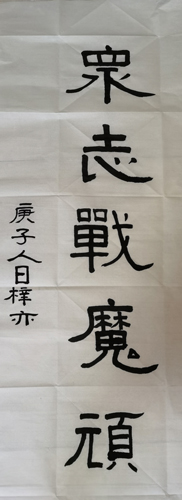 眾志戰魔頑
庚子人日梓亦